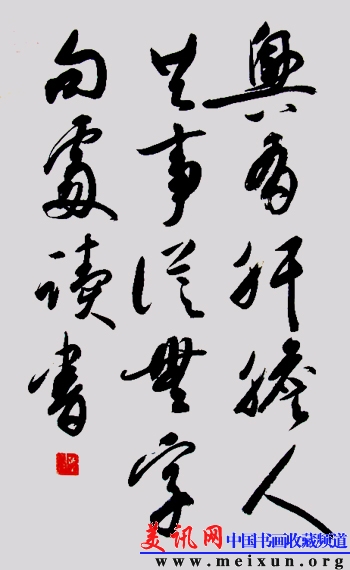 與有肝膽人
共事從無字
句處讀書
美讯网 中国书画收藏频道
www.meixun.org